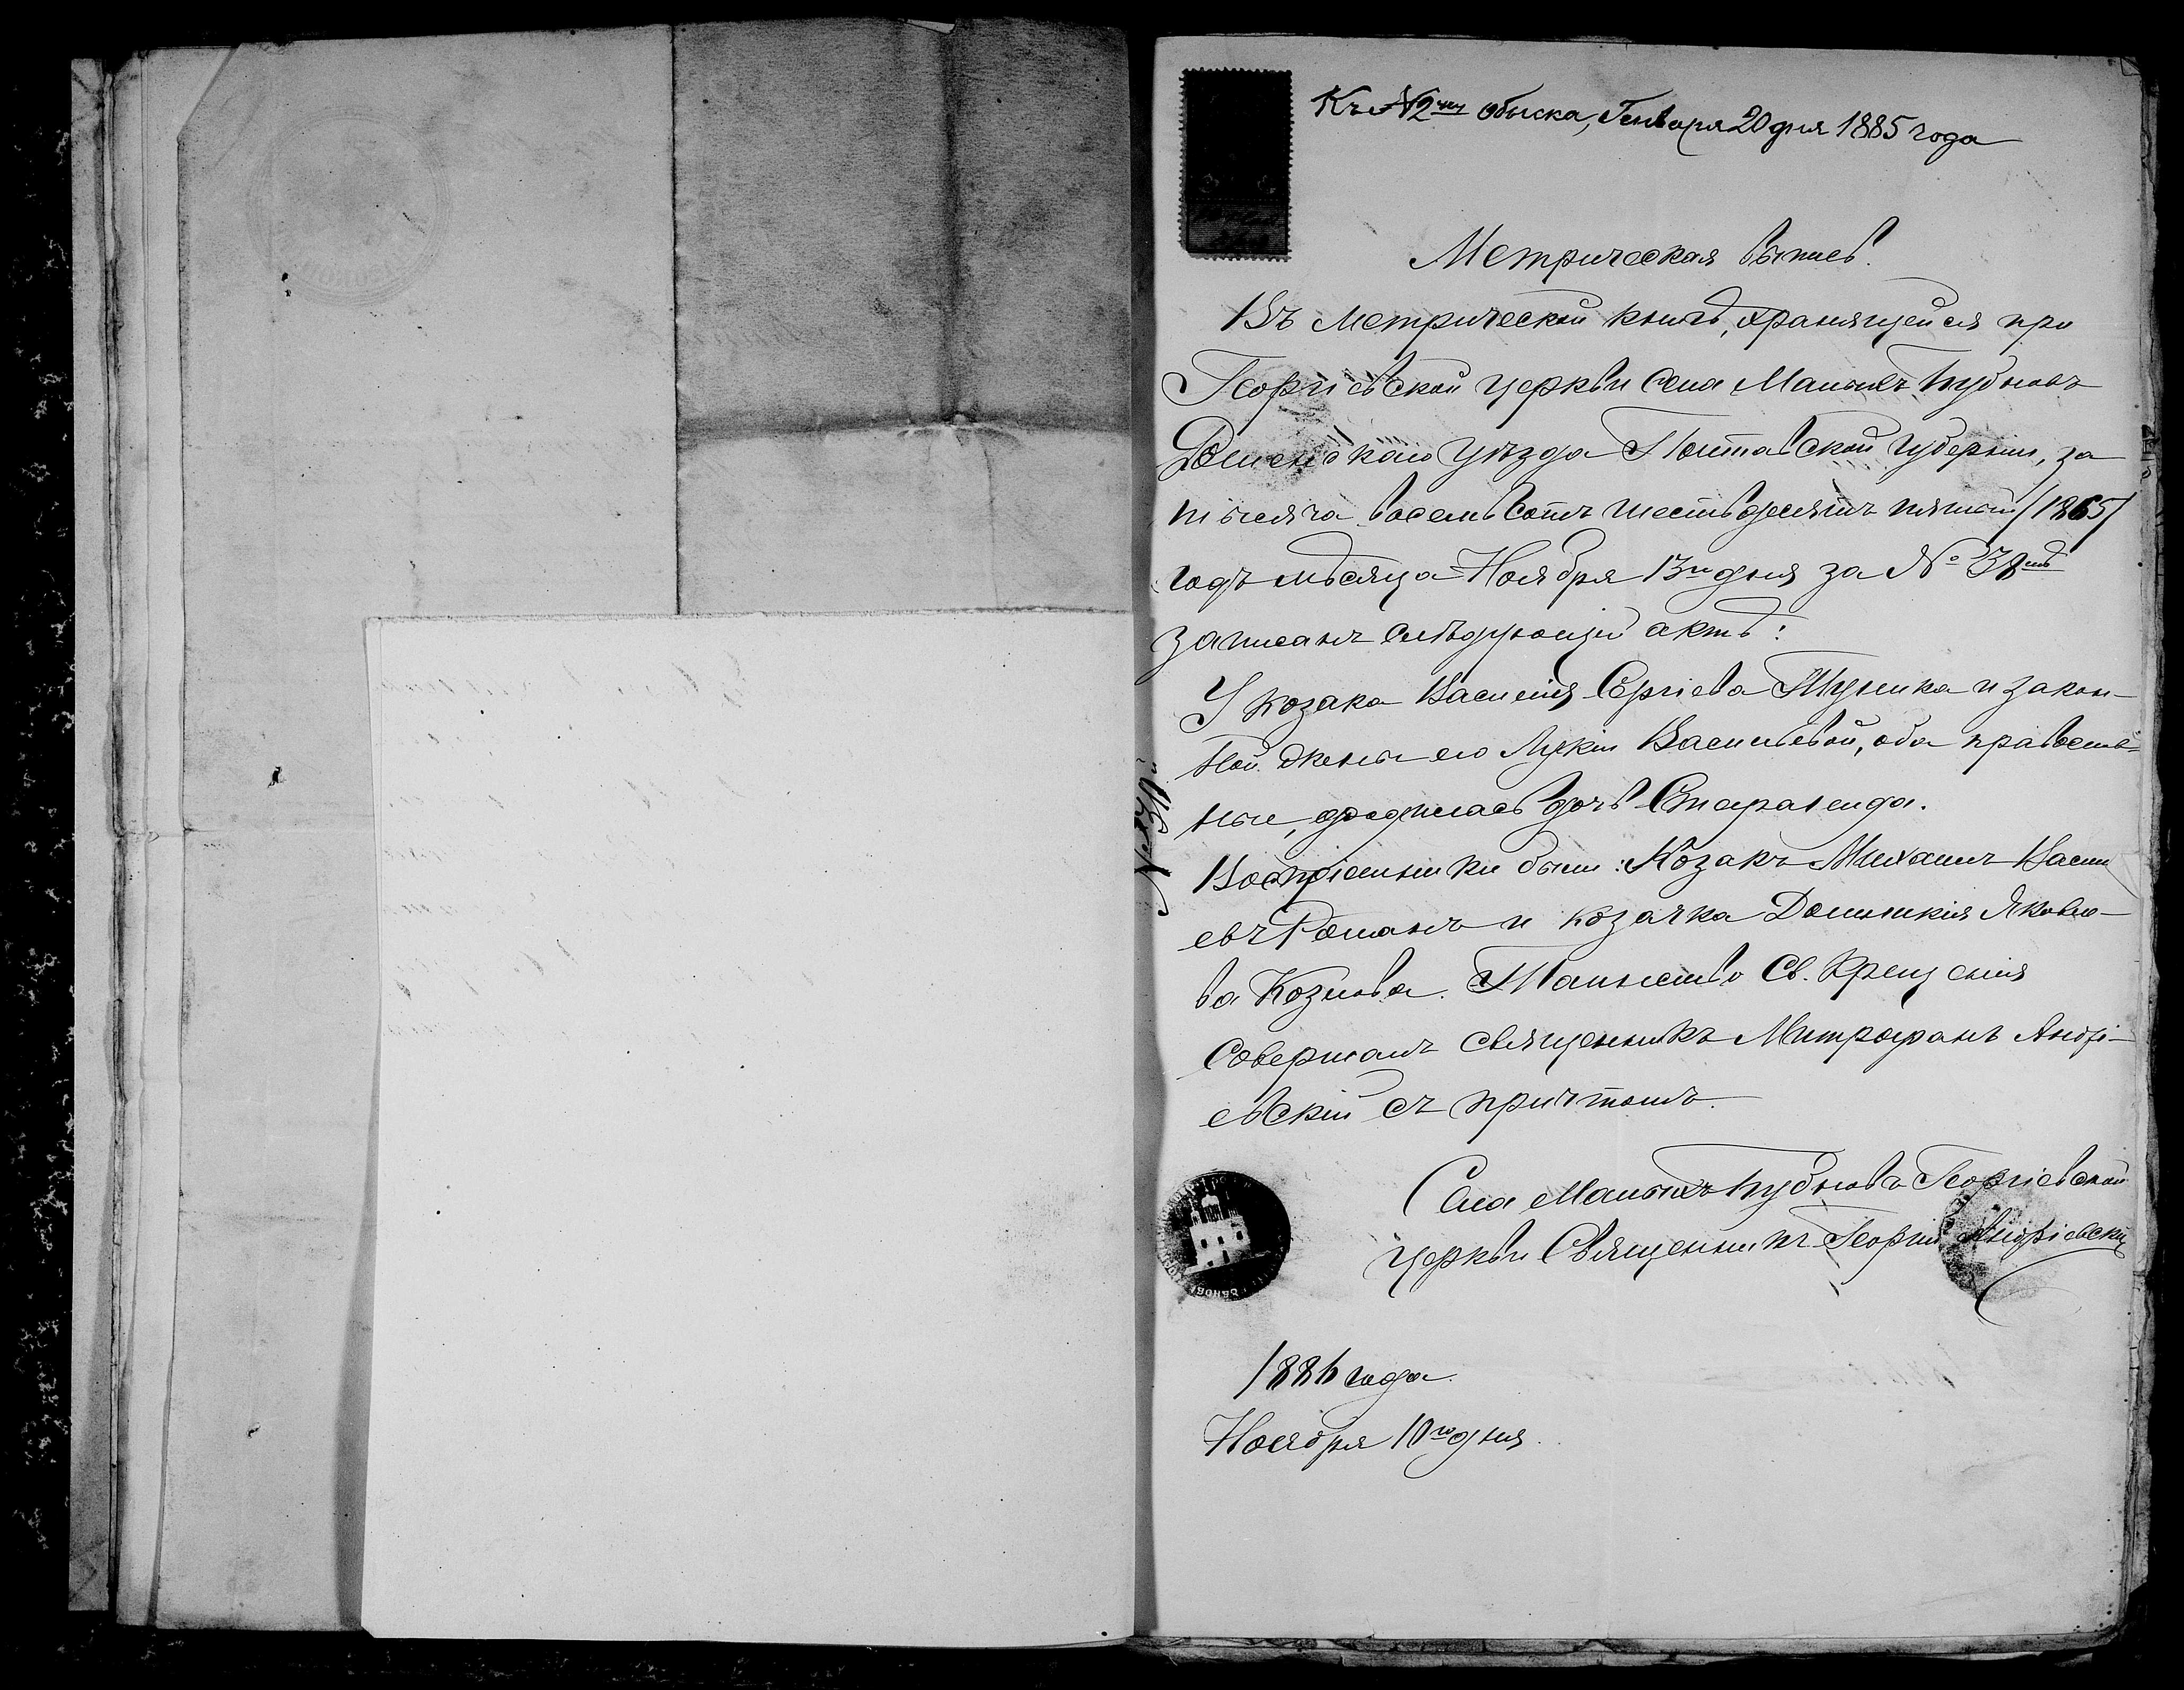 Къ №2му обыска, Генваря 20 дня 1885 года
Метрическая выпись.
Въ метрической книгѣ, хранящейся при
Георгіевской церкви села Малыхъ Бубновъ
Роменскаго уѣзда Полтавской губерніи, за
тысяча восемьсотъ шестьдесятъ пятый /1865/
годъ мѣсяца Ноября 13го дня за №
записанъ слѣдующій актъ:
У козака Василія Сергіева и закон-
ной жены его Лукіи Васильевой, оба православ-
ные, родилась дочь
Воспріемники были: Козакъ Михаилъ Васил
евъ Романъ и козачка Домникія Яковле-
ва Козлова. Таинство Св. Крещенія
совершалъ священникъ Митрофанъ Андрі-
евскій съ причтомъ.
Села Малыхъ Бубновъ Георгіевской
церкви Священникъ Георгій Андріевскій
1886 года
Ноября 10го дня.